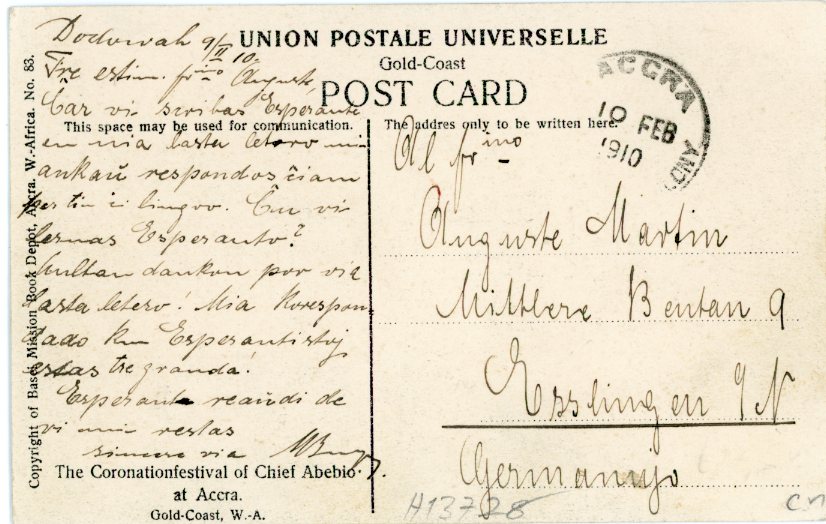 Dodowah 9/II 10.
UNION POSTALE UNIVERSELLE
Gold-Coast
POST CARD
Tre estim. frino Auguste,
Ĉar vi scribas Esperante
This space may be used for communication.
en via lasta letero mi
ankaŭ respondos ĉiam
per tiu ĉi lingvo. Ĉu vi
lernas Esperanto?
Multan dankon por via
lasta letero! Mia korespon
dado kun Esperantistoj
estas tre granda.
Esperante reaŭdi de
vi mi restas
sincere via
The Coronationfestival of Chief Abebio
at Accra.
Gold-Coast, W.-A.
Copyright of Basel Mission Book Depot, Accra. W.-Africa. No. 83.
The addres only to be written here.
ACCRA
10 FEB
1910
Al frino
Auguste Martin
Mittlere Beutau 9
Esslingen a/N
Germanujo
H1378